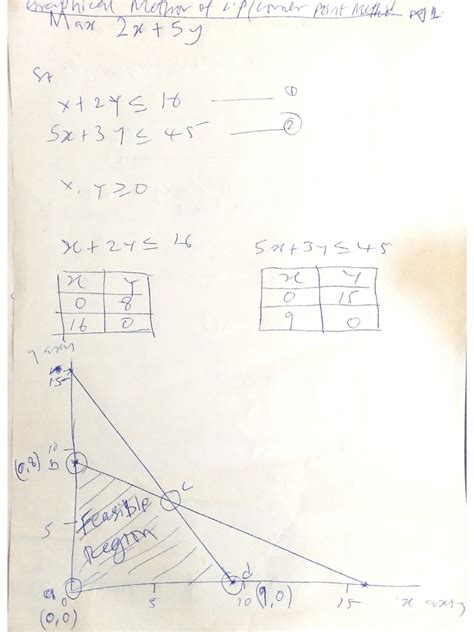 Graphical Method of L.P/Corner Point Method pg 1.
Max 2x+5y
St
x+2y≤16 ——— ①
5x+3y≤45 ——— ②
x, y≥0
x+2y≤16
x y
0 8
16 0
5x+3y≤45
x y
0 15
9 0
y axis
15
10
(0,8) b
c
5
Feasible
Region
a
d
(9,0)
0
5
10
15
x axis
(0,0)